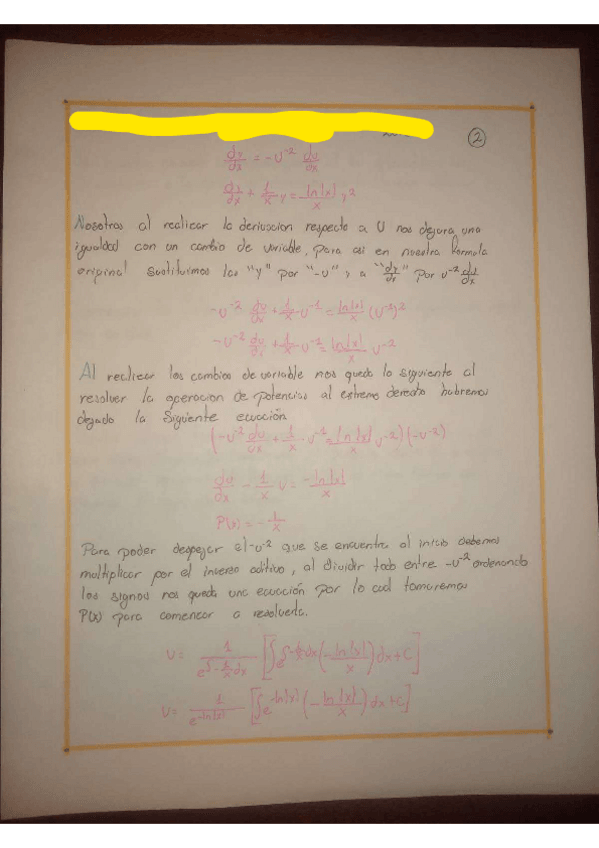 2
dy/dx = -u⁻² du/dx
dy/dx + 1/x y = ln|x|/x y²
Nosotros al realizar la derivacion respecto a U nos dejara una
igualdad con un cambio de variable, para asi en nuestra formula
original sustituimos las "y" por "-u" y a "dy/dx" por u⁻² du/dx
-u⁻² du/dx + 1/x · u⁻¹ = ln|x|/x (u⁻¹)²
-u⁻² du/dx + 1/x · u⁻¹ = ln|x|/x u⁻²
Al realizar los cambios de variable nos queda lo siguiente al
resolver la operacion de potencias al extremo derecho habremos
dejado la siguiente ecuación
(-u⁻² du/dx + 1/x · u⁻¹ = ln|x|/x u⁻²)(-u⁻²)
du/dx - 1/x u = -ln|x|/x
P(x) = -1/x
Para poder despejar el -u⁻² que se encuentra al inicio debemos
multiplicar por el inverso aditivo, al dividir todo entre -u⁻² ordenando
los signos nos queda una ecuación por lo cual tomaremos
P(x) para comenzar a resolverla.
U = 1/e^∫-1/x dx [∫e^∫-1/x dx (-ln|x|/x) dx + C]
U = 1/e^-ln|x| [∫e^-ln|x| (-ln|x|/x) dx + C]